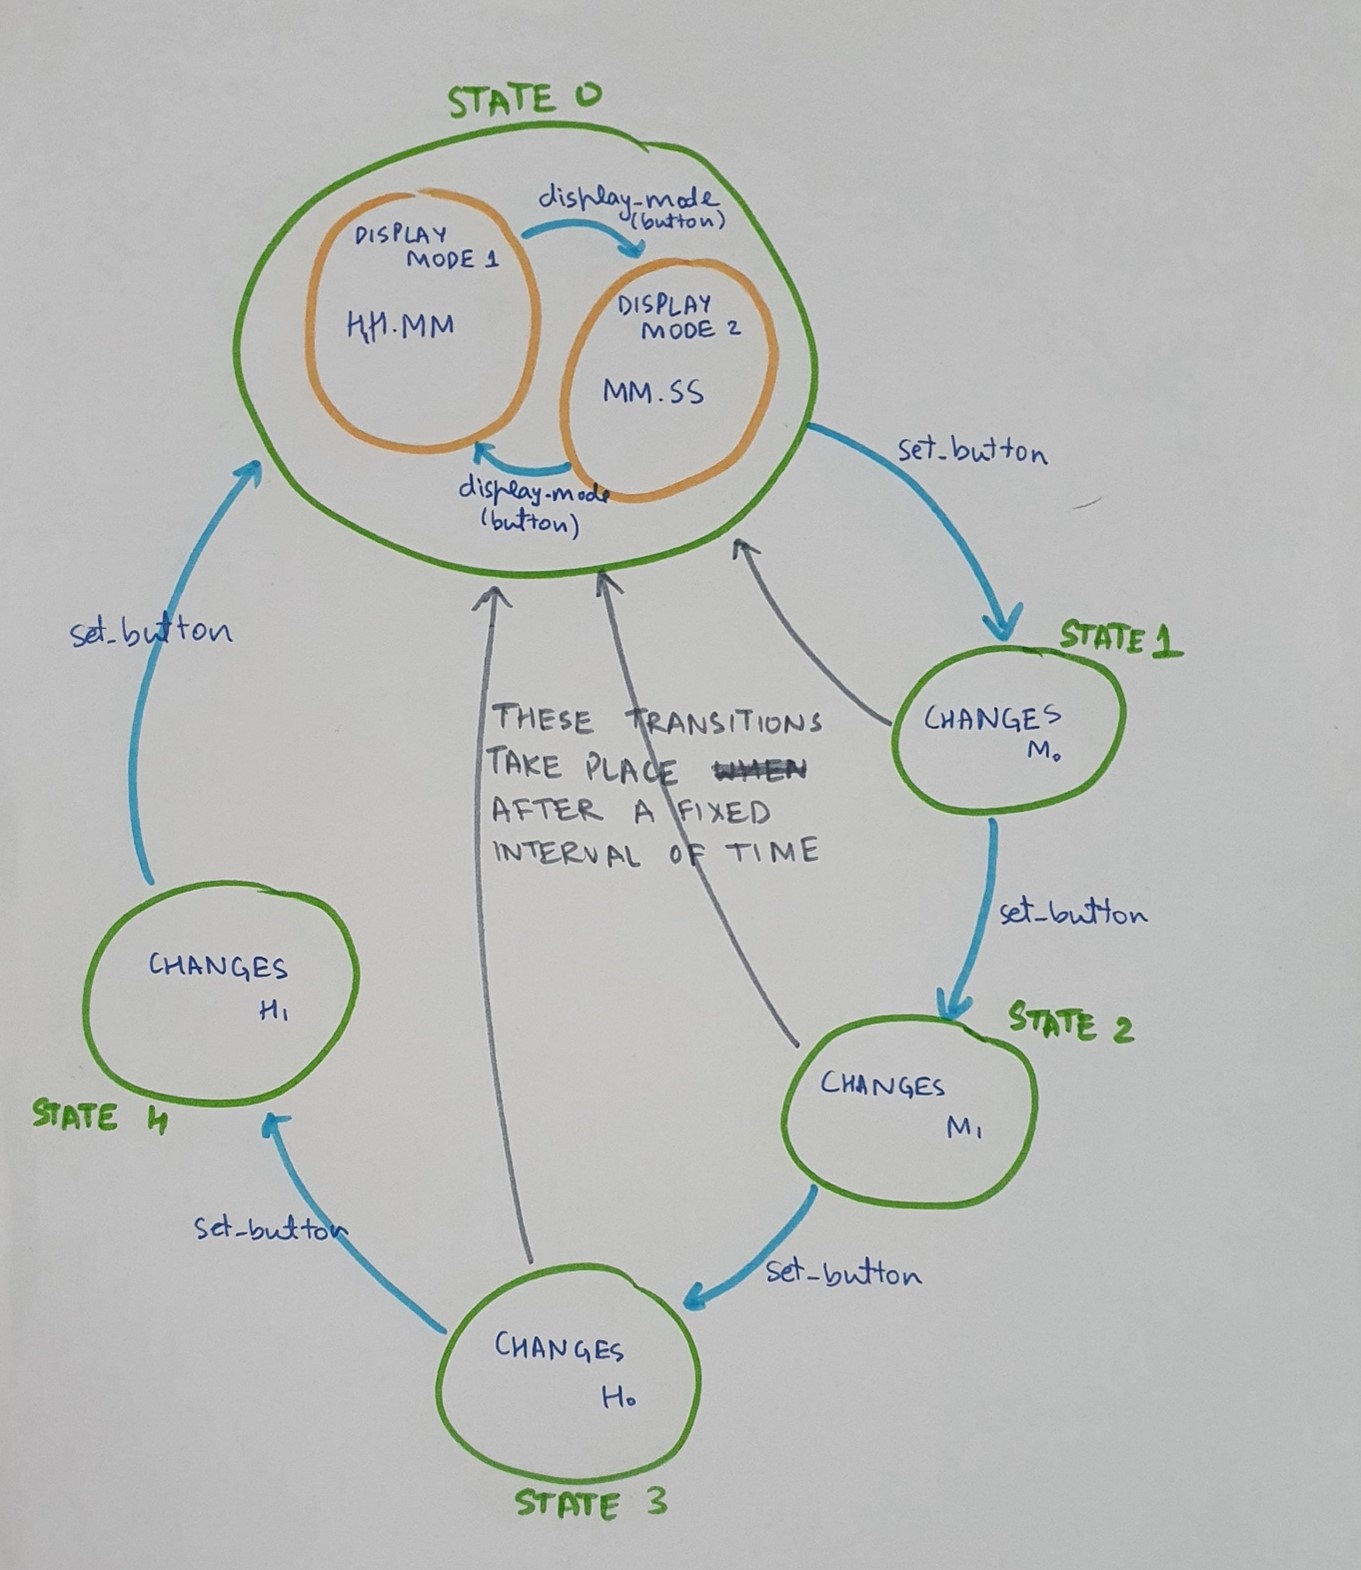 STATE 0
display-mode
(button)
DISPLAY
MODE 1
HH.MM
DISPLAY
MODE 2
MM.SS
display-mode
(button)
set_button
set_button
STATE 1
CHANGES
M₀
THESE TRANSITIONS
TAKE PLACE
AFTER A FIXED
INTERVAL OF TIME
set_button
CHANGES
H₁
STATE 4
STATE 2
CHANGES
M₁
set_button
set_button
CHANGES
H₀
STATE 3